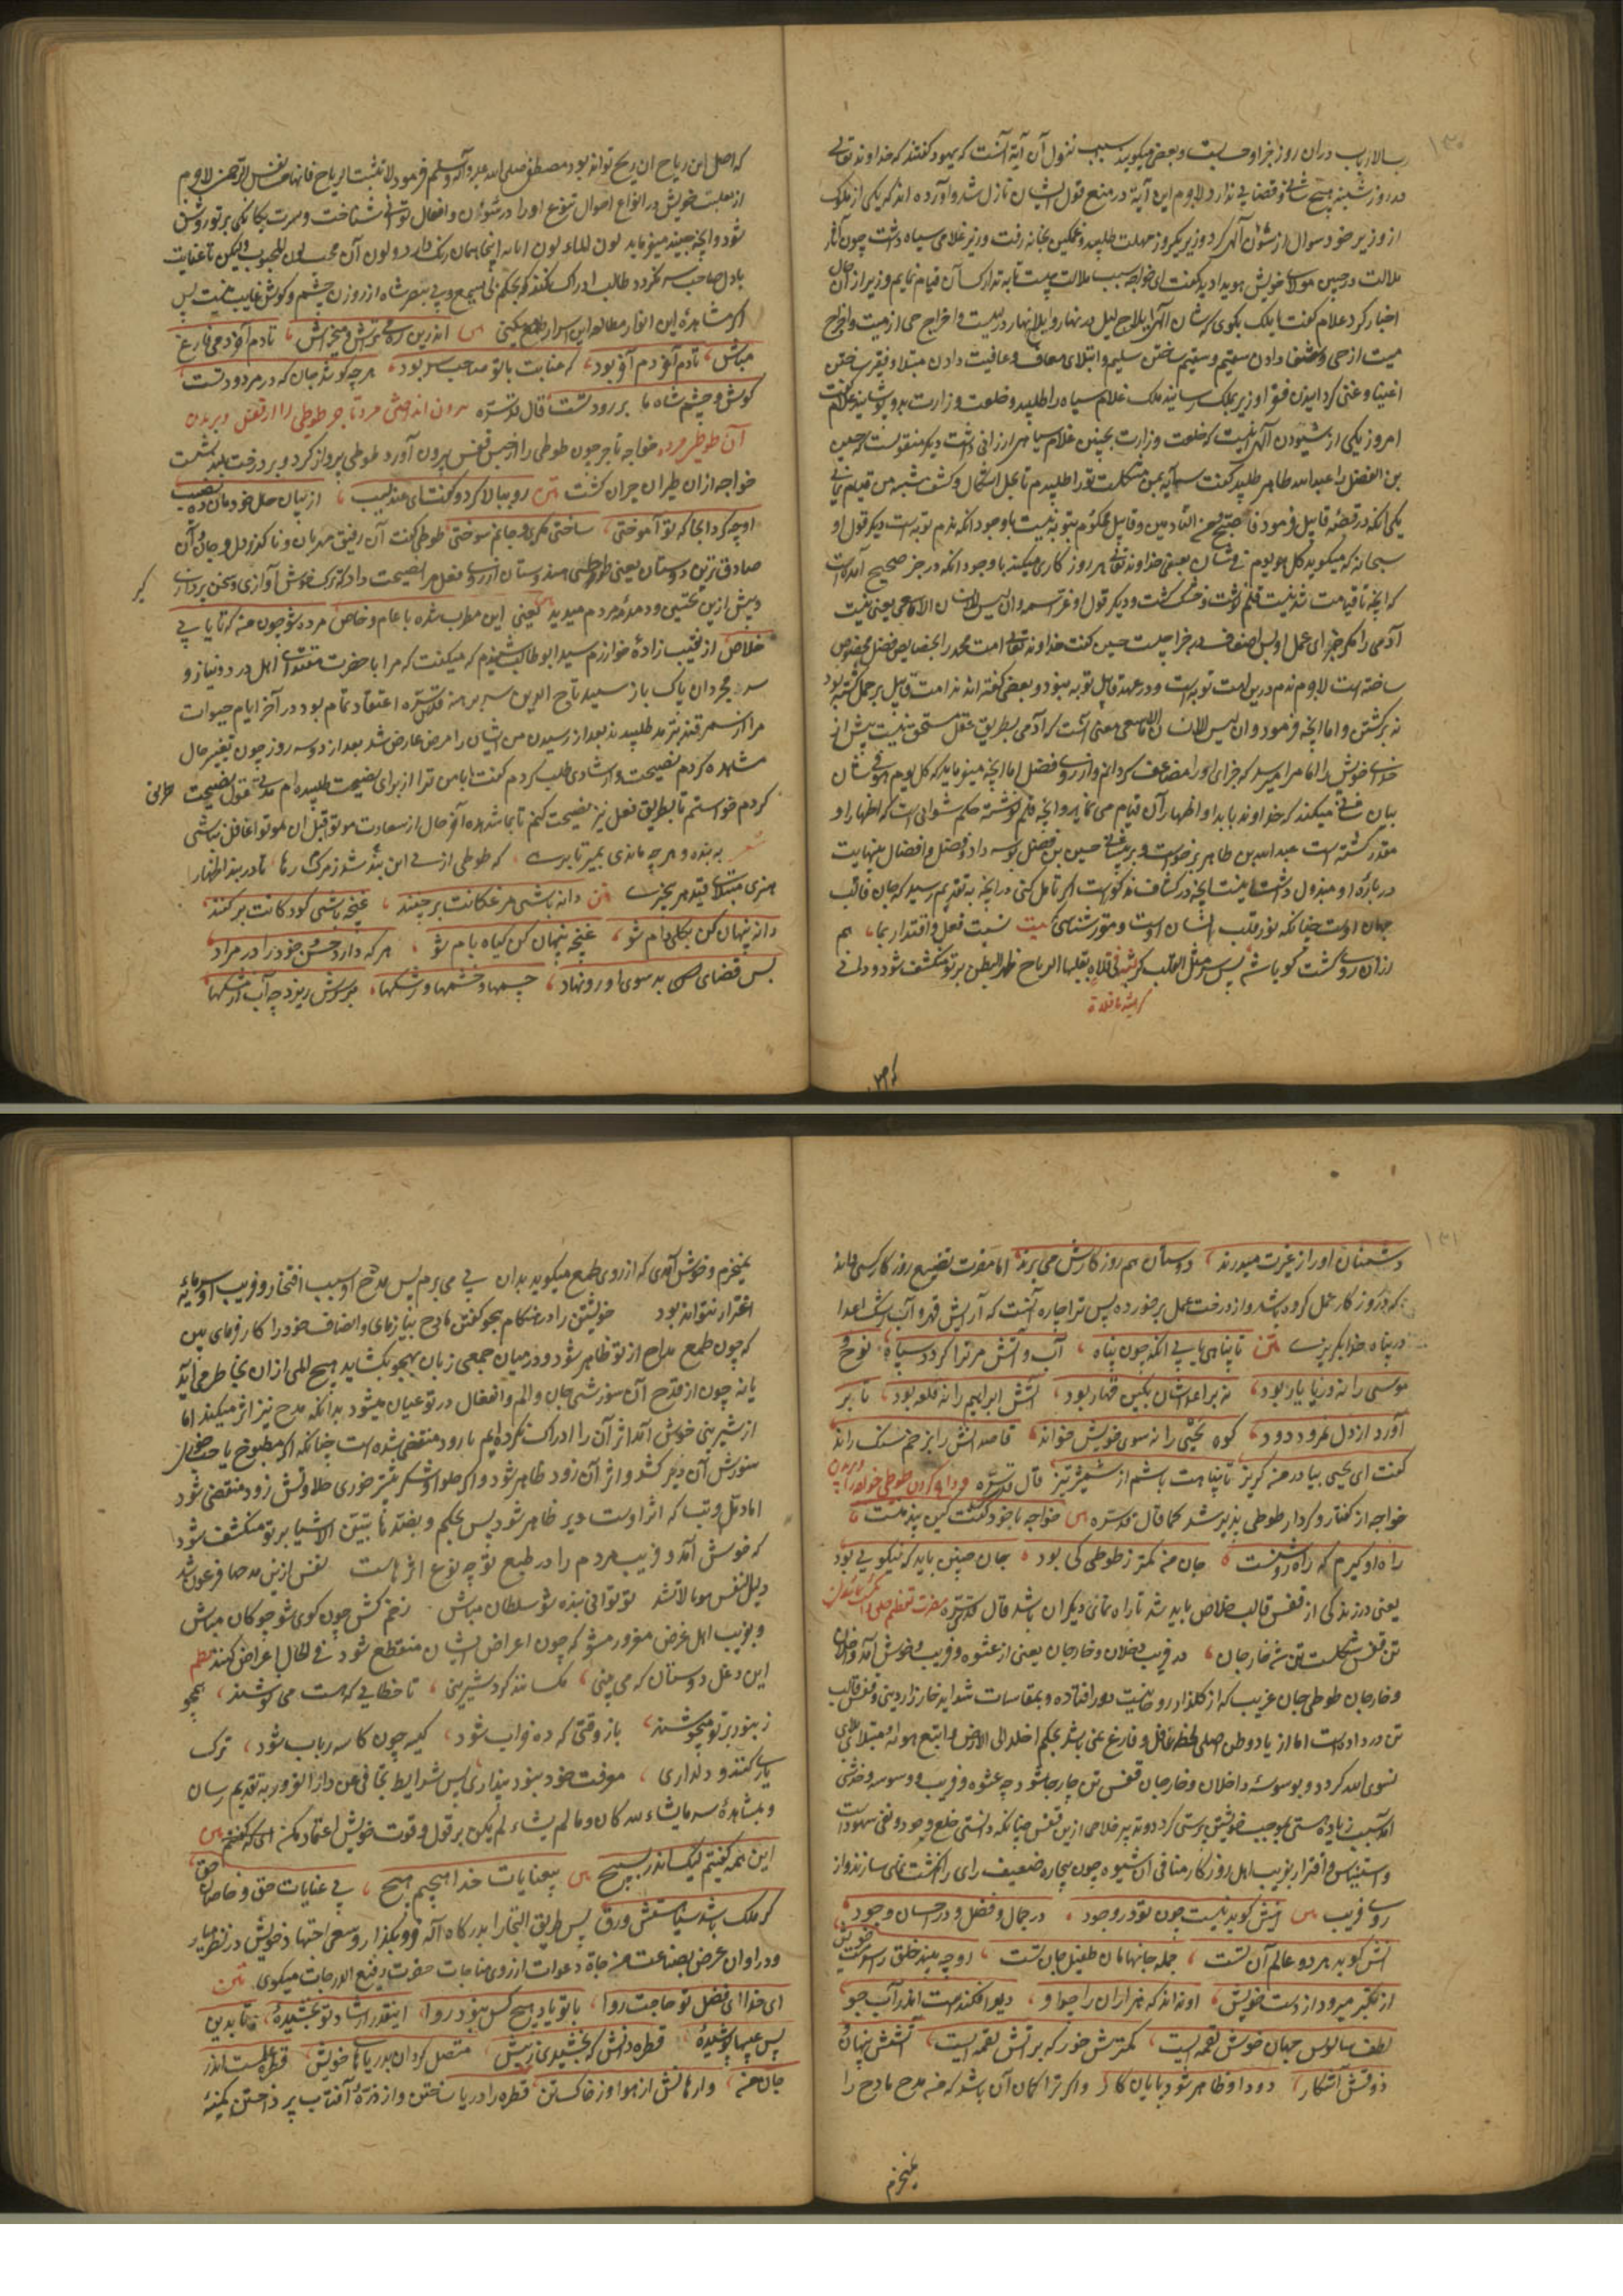 ۱۳۰
رب الارباب در آن روز جزا و حسابست و بعضی میگویند سبب نزول آن آیة آنست که یهود گفتند که خداوند تعالی
در روز شنبه هیچ شانی و قضایی ندارد لاجرم این آیة در منع قول ایشان نازل شد و آورده اند که یکی از ملوک
از وزیر خود سوال از شئون آلهی کرد وزیر یکروز مهلت طلبید و غمگین بخانه رفت وزیر غلامی سیاه داشت چون آثار
ملالت در جبین مولای خویش هویدا دید گفت ای خواجه سبب ملالت چیست تا به تدارک آن قیام نمایم وزیر از آن حال
اخبار کرد غلام گفت با ملک بگوی که شان آلهی ایلاج لیل در نهار و ایلاج نهار در لیلست و اخراج حی از میت و اخراج
میت از حی و شفا دادن سقیم و سقیم ساختن سلیم و ابتلای معاف و عافیت دادن مبتلا و فقیر ساختن
اغنیا و غنی گردانیدن فقرا وزیر بملک رسانید ملک غلام سیاه را طلبید و خلعت وزارت بدو پوشانید غلام گفت
امروز یکی از شئون آلهی اینست که خلعت وزارت بچنین غلام سیاهی ارزانی داشت دیگر منقولست که حسین
بن الفضل را عبد الله طاهر طلبید گفت سه آیه بمن مشکلست تو را طلبیدم تا بحل اشکال و کشف شبه من قیام نمایی
یکی آنکه در قصه قابیل فرمود فاصبح من النادمین و قابیل محکوم بتوبه نیست با وجود آنکه ندم توبه است دیگر قول او
سبحانه که میگوید کل یوم هو فی شان یعنی خداوند تعالی هر روز کاری میکند با وجود آنکه در خبر صحیح آمده است
که آنچه تا قیامت شدنیست قلم نوشت و خشک گشت و دیگر قول او عز اسمه و ان لیس للانسان الا ما سعی یعنی نیست
آدمی را مگر جزای عمل او پس اضعاف در جزا چیست حسین گفت خداوند تعالی امت محمد را بخصایص فضل مخصوص
ساخته است لاجرم ندم درین امت توبه است و در عهد قابیل توبه نبود و بعضی گفته اند ندامت قابیل بر حمل کشته بود
نه بر کشتن و اما آنچه فرمود و ان لیس للانسان الا ما سعی معنی آنست که آدمی بطریق عدل مستحق نیست بیش از
جزای خویش را اما مرا میرسد که جزای او را مضاعف گردانم و از روی فضل اما آنچه میفرماید که کل یوم هو فی شان
بیان شانی میکند که خداوند بابداء و اظهار آن قیام می نماید و آنچه قلم نوشته حکم شئونی است که اظهار او
مقدر گشته است عبد الله بن طاهر برخواست و بر پیشانی حسین بن فضل بوسه داد و فضل و افضال بینهایت
در باره او مبذول داشت اینست آنچه در کشاف مذکورست اگر تامل کنی در آنچه به تقدیم رسید که جان قالب
جهان اوست چنانکه نور قلب انسان اوست و متور شناسی بیت نسبت فعل و اقتدار بما هم
از آن روی است کو باشه پس سر مثل القلب کریشة فی فلاة یقلبها الریاح ظهر البطن بر تو منکشف شود و دانی
کریشة فی فلاة
که اصل
که اصل این ریاح آن ریح تواند بود مصطفی صلی الله علیه و آله و سلم فرمود لا تسبوا الریاح فانها من نفس الرحمن لاجرم
از تقلب خویش در انواع احوال تنوع او را در شئون و افعال توانی شناخت و سرّ یکتایی بر تو روشن
شود و آنچه جنید میفرماید لون الماء لون انائه اینجا همان رنگ دارد و لون آن محب لون المحبوب ولیکن تا عنایت
با دل صاحب سر نگردد طالب ادراک نکند که بحکم بی یسمع و بی یبصر شاه از روزن چشم و گوش غایب نیست پس
اگر مشاهده این انوار مطالعه این اسرار طمع میکنی س اندرین ره می تراش و میخراش تا دم آخر دمی فارغ
مباش تا دم آخر دم آخر بود که عنایت با تو صاحب سر بود هر چه کوشد جان که در مرد و زنست
گوش و چشم شاه ما بر روزنست قال قدس سره برون انداختن مرد تاجر طوطی را از قفس و پریدن
آن طوطی مرده خواجه تاجر چون طوطی را از حبس قفس بیرون آورد طوطی پرواز کرد و بر درخت بلند نشست
خواجه از آن طیران حیران گشت متن رو ببالا کرد و گفت ای عندلیب از بیان حال خودمان ده نصیب
او چه کرد آنجا که تو آموختی ساختی مکری و جانم سوختی طوطی گفت آن رفیق مهربان و ناگذر دل و جان آن
صادق ترین دوستان یعنی طوطی هندوستان از روی فعل مرا نصیحت داد که ترک خوش آوازی و سخن پردازی گیر
و بیش ازین تحسین و دمدمه مردم مدید س یعنی این مطرب شده با عام و خاص مرده شو چون من که تا یابی
خلاص از نقیب زاده خوارزم سید ابو طالب شنیدم که میگفت که مرا با حضرت مقتدای اهل درد و نیاز و
سر مجردان پاک باز سید تاج الدین سر برهنه قدس سره اعتقاد تمام بود در آخر ایام حیوات
مرا از سمرقند بترمد طلبیدند بعد از رسیدن من ایشان را مرض عارض شد بعد از دو سه روز چون تغییر حال
مشاهده کردم نصیحت و ارشادی طلب کردم گفت بابا من ترا از برای نصیحت طلبیده ام مدتی بقول نصیحت
کردم خواستم تا بطریق فعل نیز نصیحت کنم تا بمشاهده آخر حال از سعادت موتوا قبل ان تموتوا غافل نباشی
شعر به بنده و هر چه ماندی بمیر تا برهی که طوطی از پی این بند شد ز مرگ رها تا در بند اظهار
هنری مبتلای قید هر بخری متن دانه باشی مرغکانت برچنند غنچه باشی کودکانت برکنند
دانه پنهان کن بکلی دام شو غنچه پنهان کن گیاه بام شو هر که دارد حسن خود را در مراد
بس قضای بد سوی او رو نهاد چشمها و خشمها و رشکها بر سرش ریزد چو آب از مشکها
۱۳۱
دشمنان او را ز غیرت میدرند دوستان هم روزگارش می برند اما مضرت تضییع روزگار کسی داند
که در روز کار عمل کرده باشد و از درخت عمل بر خورده پس ترا چاره آنست که از آتش قهر و آب رشک اعدا
در پناه خدا گریزی متن تا پناهی یابی آنگه چون پناه آب و آتش مر ترا گردد سپاه نوح و
موسی را نه دریا یار بود نه بر اعداشان بکین قهار بود آتش ابراهیم را نه قلعه بود تا بر
آورد از دل نمرود دود کوه یحیی را نه سوی خویش خواند قاصدانش را بزخم سنگ راند
گفت ای یحیی بیا در من گریز تا پناهت باشم از شمشیر تیز قال قدس سره وداع کردن طوطی خواجه را و پریدن
خواجه از گفتار و کردار طوطی پندپذیر شد کما قال قدس سره س خواجه با خود گفت کین پند منست
راه او گیرم که این ره روشنست جان من کمتر ز طوطی کی بود جان چنین باید که نیکو پی بود
یعنی در زندگی از قفس قالب خلاص باید شد تا راه نمای دیگران باشد قال قدس سره مضرت تعظیم خلق و انگشت نما شدن
تن قفس شکلست تن شد خار جان در فریب داخلان و خارجان یعنی از عشوه و فریب و خوش آمد داخلان
و خارجان طوطی جان غریب که از گلزار روحانیت دور افتاده و بمقاسات شداید خارزار دنیی و قفس قالب
تن در داده است اما از یاد وطن اصلی لحظه غافل و فارغ نمی باشد بحکم اخلد الی الارض و اتبع هواه مبتلای
نسوی الله گردد و بوسوسه داخلان و خارجان قفس تن خار جان شود چه عشوه و فریب و وسوسه و خدشه
اسبب زیاده هستی و موجب خویشتن پرستی گردد و تدبیر خلاصی ازین قفس چنانکه دانستی خلع وجود و نفی شهود است
و استیناس و افترار بفریب اهل روزگار منافی آن شیوه چون بیچاره ضعیف رای را انگشت نمای سازند و از
روی فریب س اینش گوید نیست چون تو در وجود در جمال و فضل و در احسان و جود
آنش گوید هر دو عالم آن تست جمله جانهامان طفیل جان تست او چه بیند خلق را سرمست خویش
از تکبر میرود از دست خویش او نداند که هزاران را چو او دیو افکندست اندر آب جو
لطف و سالوس جهان خوش لقمه ایست کمترش خور که پر آتش لقمه ایست آتشش پنهان و
ذوقش آشکار دود او ظاهر شود پایان کار و اگر ترا گمان آن باشد که من مدح مادح را
بنیخرم
بنیخرم و خوش آمدی که از روی طمع میگوید بدان پی می برم پس مدح او سبب افتخار و فریب او سرمایه
اغترار نتواند بود خویشتن را در هنگام هجو گفتن مادح بیازمای و انصاف خود را کار فرمای ببین
که چون طمع مداح از تو ظاهر شود و در میان جمعی زبان بهجو بگشاید هیچ المی از آن بخاطر می آید
یا نه چون از قدح آن سوزش جان و الم و انفعال در تو عیان میشود بدانکه مدح نیز اثر میکند اما
از شیرینی خوش آمد اثر آن را ادراک نکرده یم یا زود منقضی شده است چنانکه اگر مطبوخ یا حب خوری
سوزش آن دیر کشد و اثر آن زود ظاهر شود و اگر حلوا و شکر بیشتر خوری حلاوتش زود منقضی شود
اما دمل و تب که اثر اوست دیر ظاهر شود پس بحکم و بضدها تتبین الاشیا بر تو منکشف شود
که خوش آمد و فریب مردم را در طبع تو چه نوع اثرهاست نفس ازین مدحها فرعون شد
ذلیل النفس هونا لا تسد تو توانی بنده شو سلطان مباش زخم کش چون گوی شو چوگان مباش
و بفریب اهل غرض مغرور مشو که چون اعراض ایشان منقطع شود فی الحال اعراض کنند نظم
این دغل دوستان که می بینی مگسانند گرد شیرینی تا حطامی که هست می نوشند همچو
زنبور بر تو میجوشند باز وقتی که ده خراب شود کیسه چون کاسه رباب شود ترک
یاری کنند و دلداری معرفت خود نبود پنداری پس شرایط تجافی عن دار الغرور به تقدیم رسان
و بمشاهده سر ما یشاء الله کان و ما لم یشاء لم یکن بر قول و قوت خویش اعتماد مکن
این همه گفتیم لیک اندر بسیج س بیعنایات خدا هیچیم هیچ بی عنایات حق و خاصان حق
گر ملک باشد سیاهستش ورق پس طریق التجا را بدرگاه آله فرو مگذار و سعی و اجتهاد خویش در نظر میار
و در اوان عرض بضاعت مزجاة دعوات از روی مناجات حضرت رفیع الدرجات میگوی متن
ای خدا ای فضل تو حاجت روا با تو یاد هیچ کس نبود روا اینقدر ارشاد تو بخشیده تا بدین
بس عیبها پوشیده قطره دانش که بخشیدی ز پیش متصل گردان بدریاهای خویش قطره علمست اندر
جان من وارهانش از هوا وز خاک تن قطره را دریا ساختن و از ذره آفتاب پرداختن کمینه